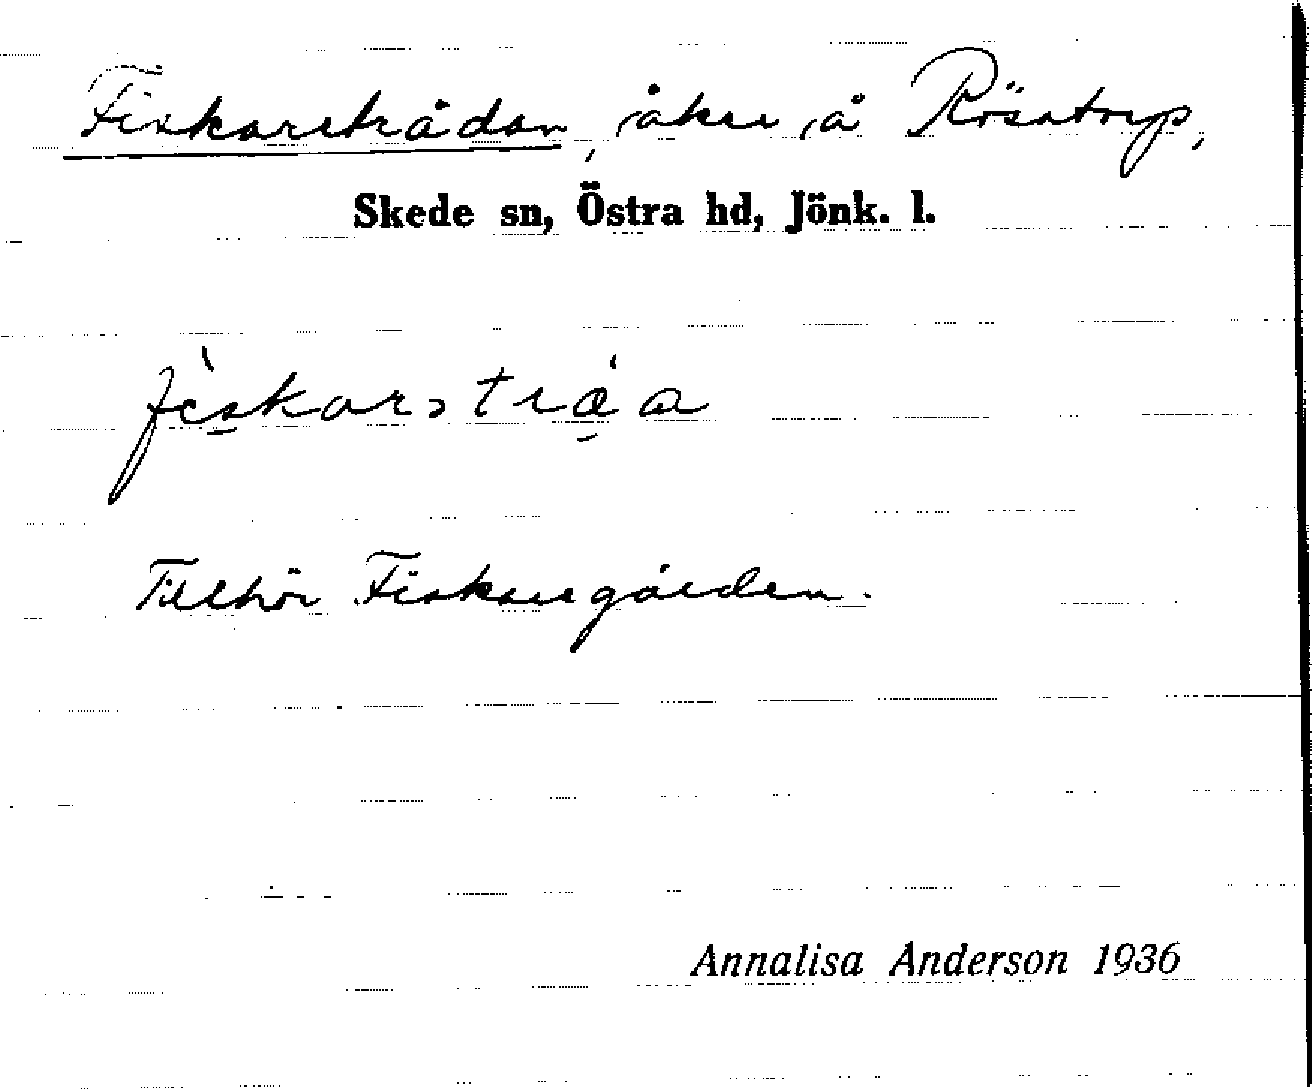 Fiskareträdan, åker å Rösatorp,
Skede sn, Östra hd, Jönk. l.
Tillhör Fiskaregården.
Annalisa Anderson 1936